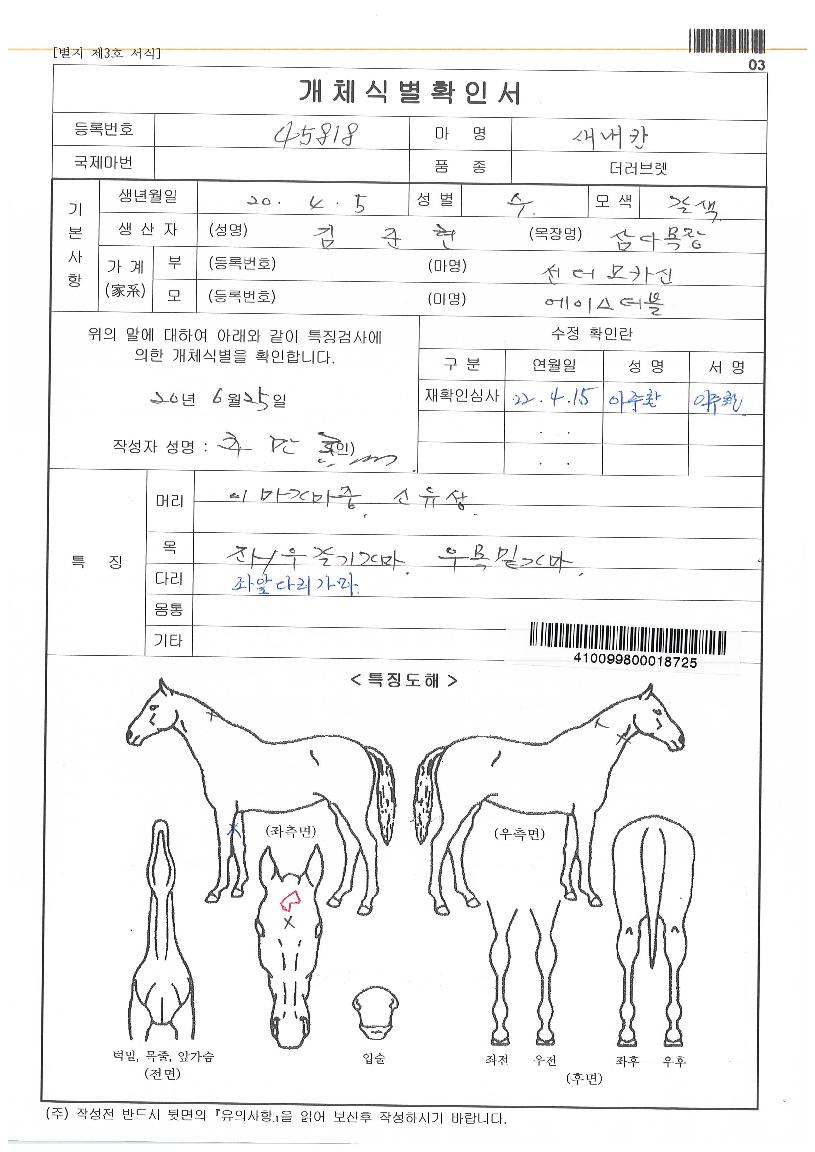 [별지 제3호 서식]
03
개체식별확인서
등록번호 45818 마 명 새내칸
국제마번 품 종 더러브렛
기본사항
생년월일 20. 4. 5 성 별 수 모 색 갈색
생 산 자 (성명) 김 준 현 (목장명) 삼다목장
가 계 (家系) 부 (등록번호) (마명) 선더모카신
모 (등록번호) (마명) 에이스더블
위의 말에 대하여 아래와 같이 특징검사에
의한 개체식별을 확인합니다.
20년 6월 25일
작성자 성명 : (인)
수정 확인란
구 분 연월일 성 명 서 명
재확인심사 22. 4. 15
. .
. .
특 징
머리 이마가마중, 소유성
목 좌/우 줄기가마, 우목밑가마,
다리 좌앞다리가마
몸통
기타
410099800018725
< 특징도해 >
(좌측면) (우측면)
턱밑, 목줄, 앞가슴
(전면)
입술
좌전 우전 좌후 우후
(후면)
(주) 작성전 반드시 뒷면의 『유의사항』을 읽어 보신후 작성하시기 바랍니다.